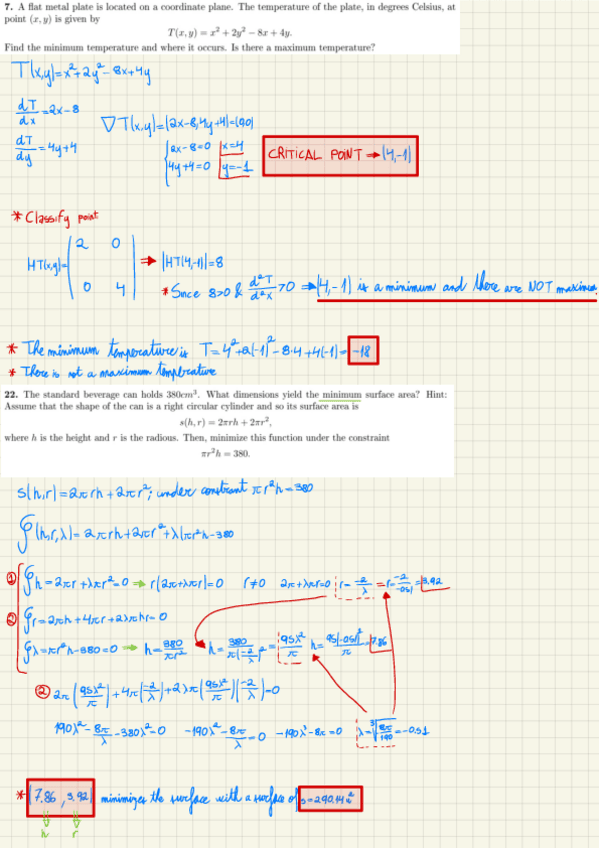 7. A flat metal plate is located on a coordinate plane. The temperature of the plate, in degrees Celsius, at
point (x, y) is given by
T(x, y) = x² + 2y² − 8x + 4y.
Find the minimum temperature and where it occurs. Is there a maximum temperature?
T(x,y)=x²+2y²-8x+4y
dT/dx=2x-8
∇T(x,y)=(2x-8,4y+4)=(0,0)
dT/dy=4y+4
2x-8=0 x=4
4y+4=0 y=-1
CRITICAL POINT → (4,-1)
* Classify point
HT(x,y)=(2 0
0 4) ⇒ |HT(4,-1)|=8
* Since 8>0 & d²T/d²x>0 ⇒ (4,-1) is a minimum and there are NOT
* The minimum temperature is T=4²+2(-1)²-8·4+4(-1)=-18
* There is not a maximum
22. The standard beverage can holds 380cm³. What dimensions yield the minimum surface area? Hint:
Assume that the shape of the can is a right circular cylinder and so its surface area is
s(h, r) = 2πrh + 2πr²,
where h is the height and r is the radious. Then, minimize this function under the constraint
πr²h = 380.
s(h,r)=2πrh+2πr²; under constraint πr²h=380
(h,r,λ)=2πrh+2πr²+λ(πr²h-380
① h=2πr+λπr²=0 → r(2π+λπr)=0 r≠0 2π+λπr=0 r=-2/λ =r=-2/-0.51=3.92
② r=2πh+4πr+2λπhr=0
λ=πr²h-380=0 → h=380/πr² h=380/π(-2/λ)²=95λ²/π h=95(-0.51)²/π=7.86
② 2π(95λ²/π)+4π(-2/λ)+2λπ(95λ²/π)(-2/λ)=0
190λ²-8π/λ-380λ²=0 -190λ²-8π/λ=0 -190λ³-8π=0 λ=∛8π/190=-0.51
* (7.86, 3.92) minimizes the surface with a surface of
h r